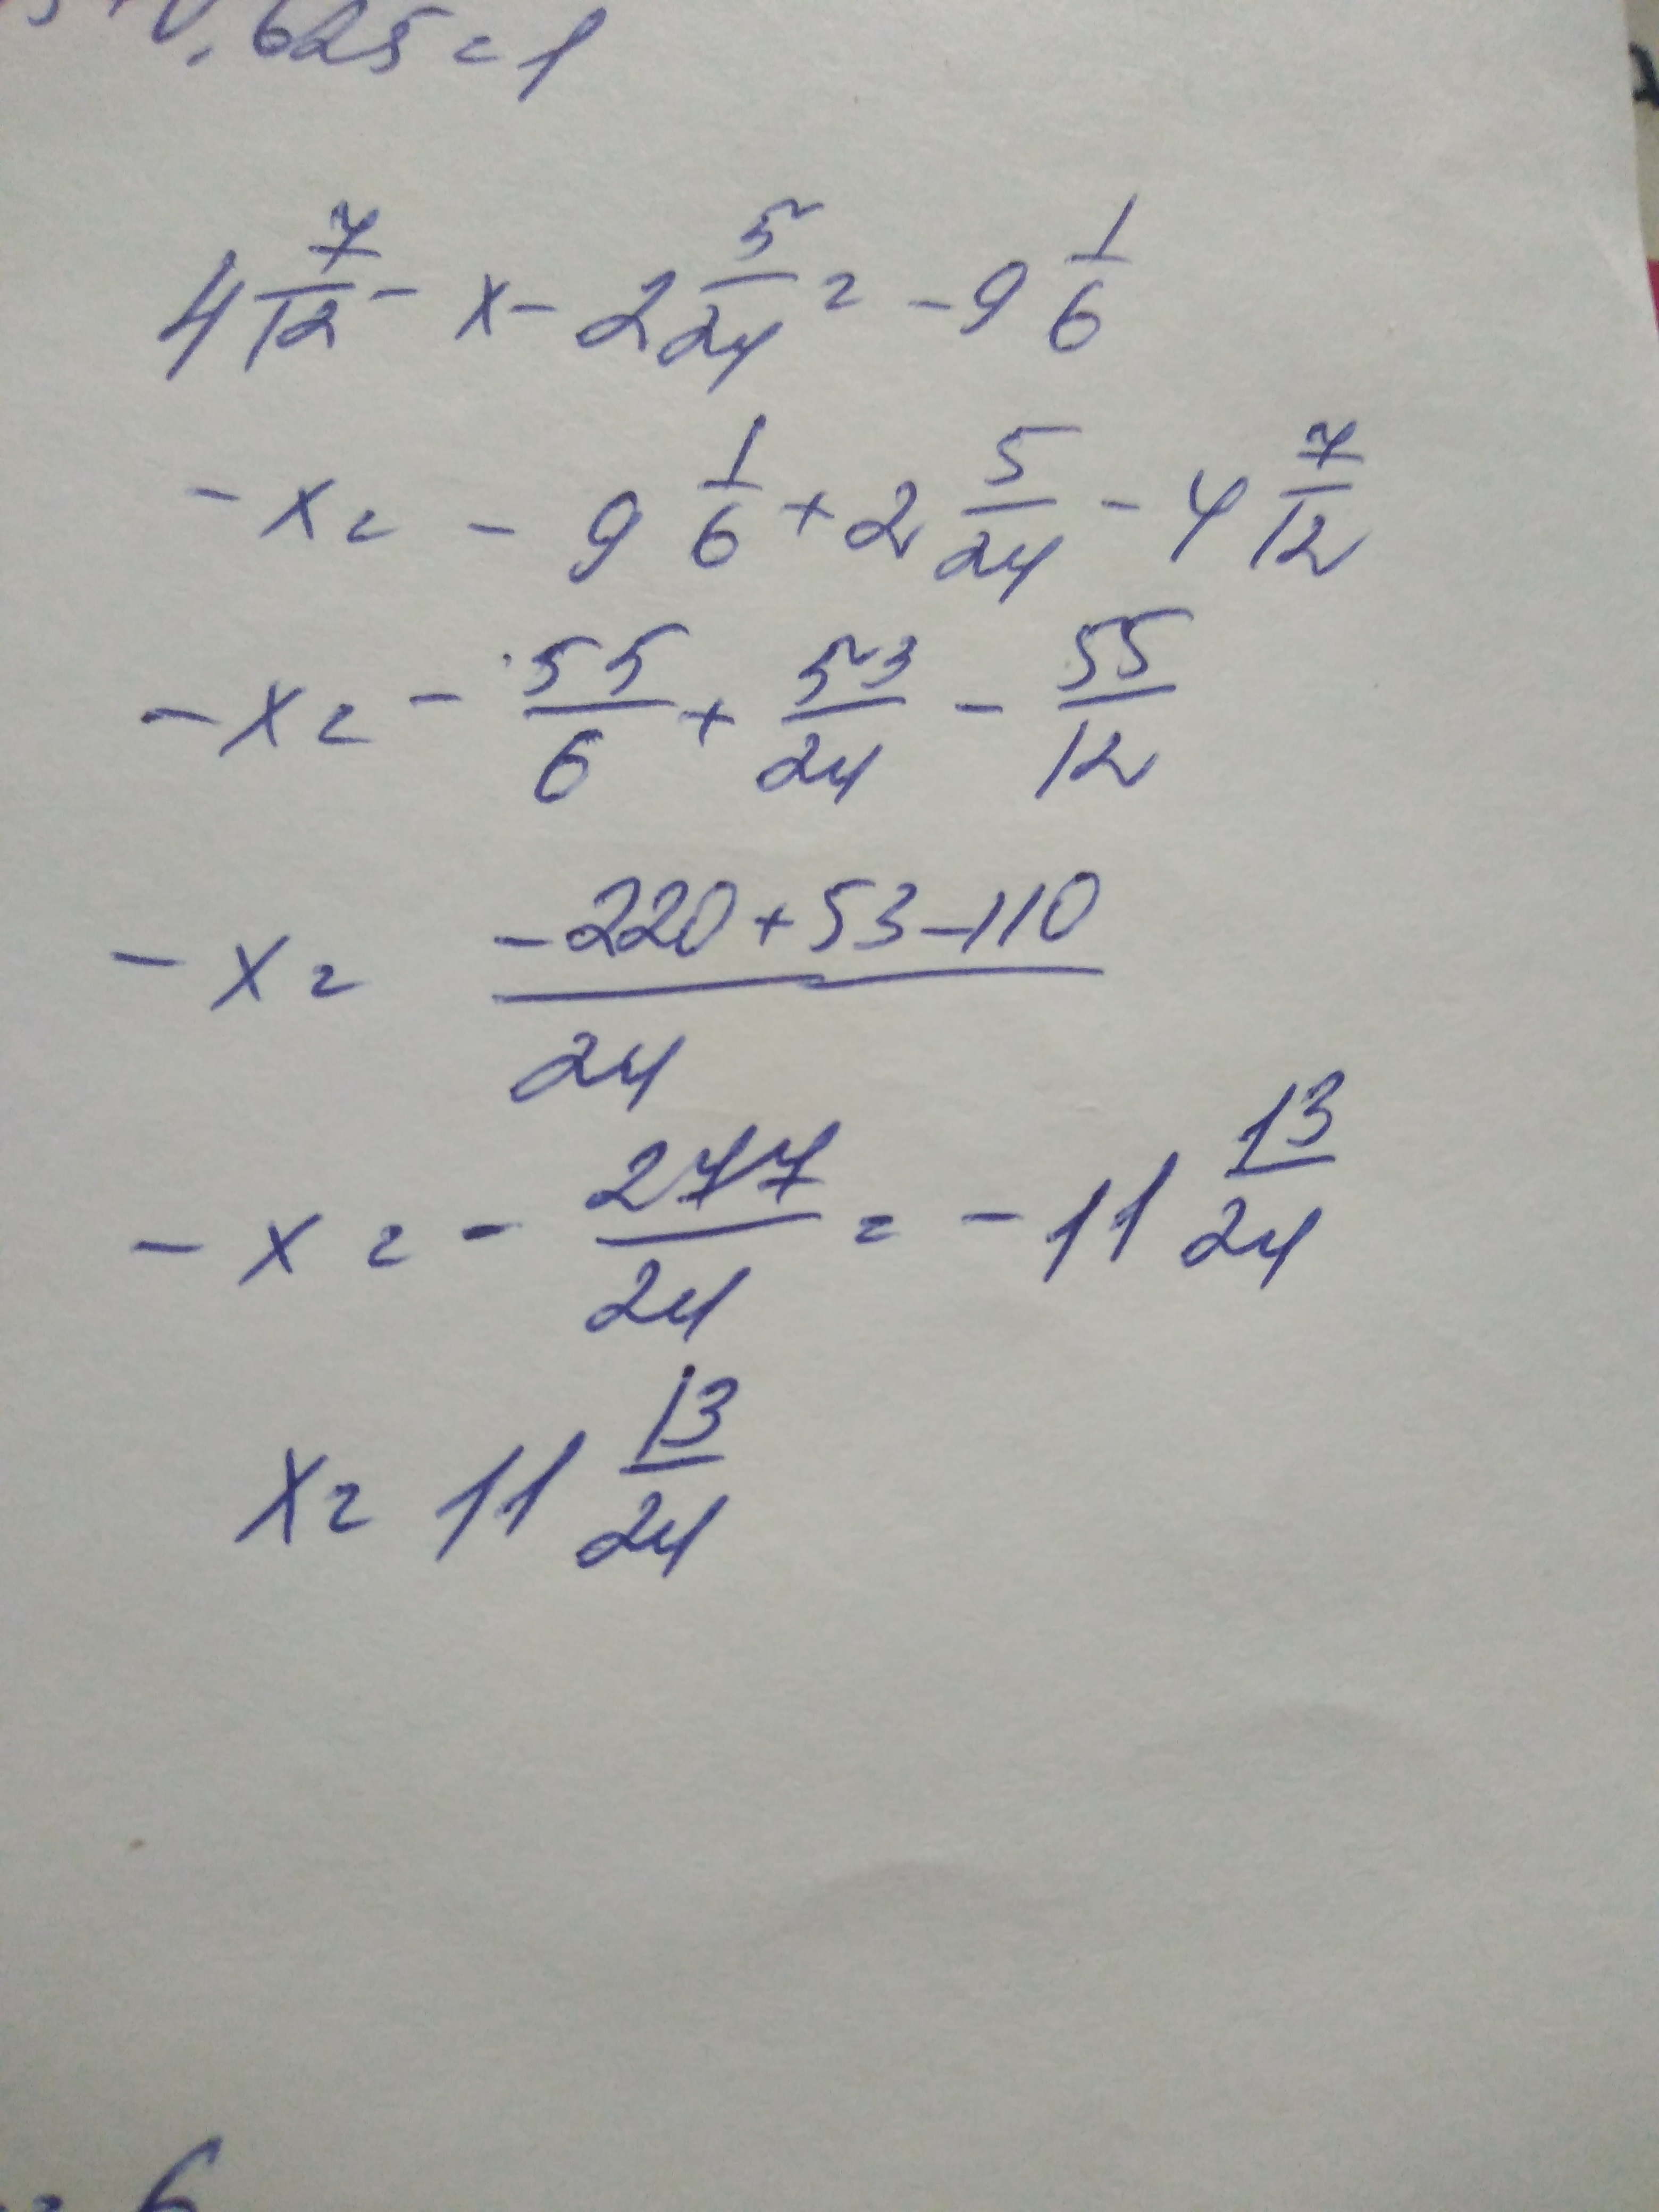 0.625 = 1
4 7/12 - x - 2 5/24 = -9 1/6
-x = -9 1/6 + 2 5/24 - 4 7/12
-x = -55/6 + 53/24 - 55/12
-x = (-220 + 53 - 110)/24
-x = -277/24 = -11 13/24
x = 11 13/24
6